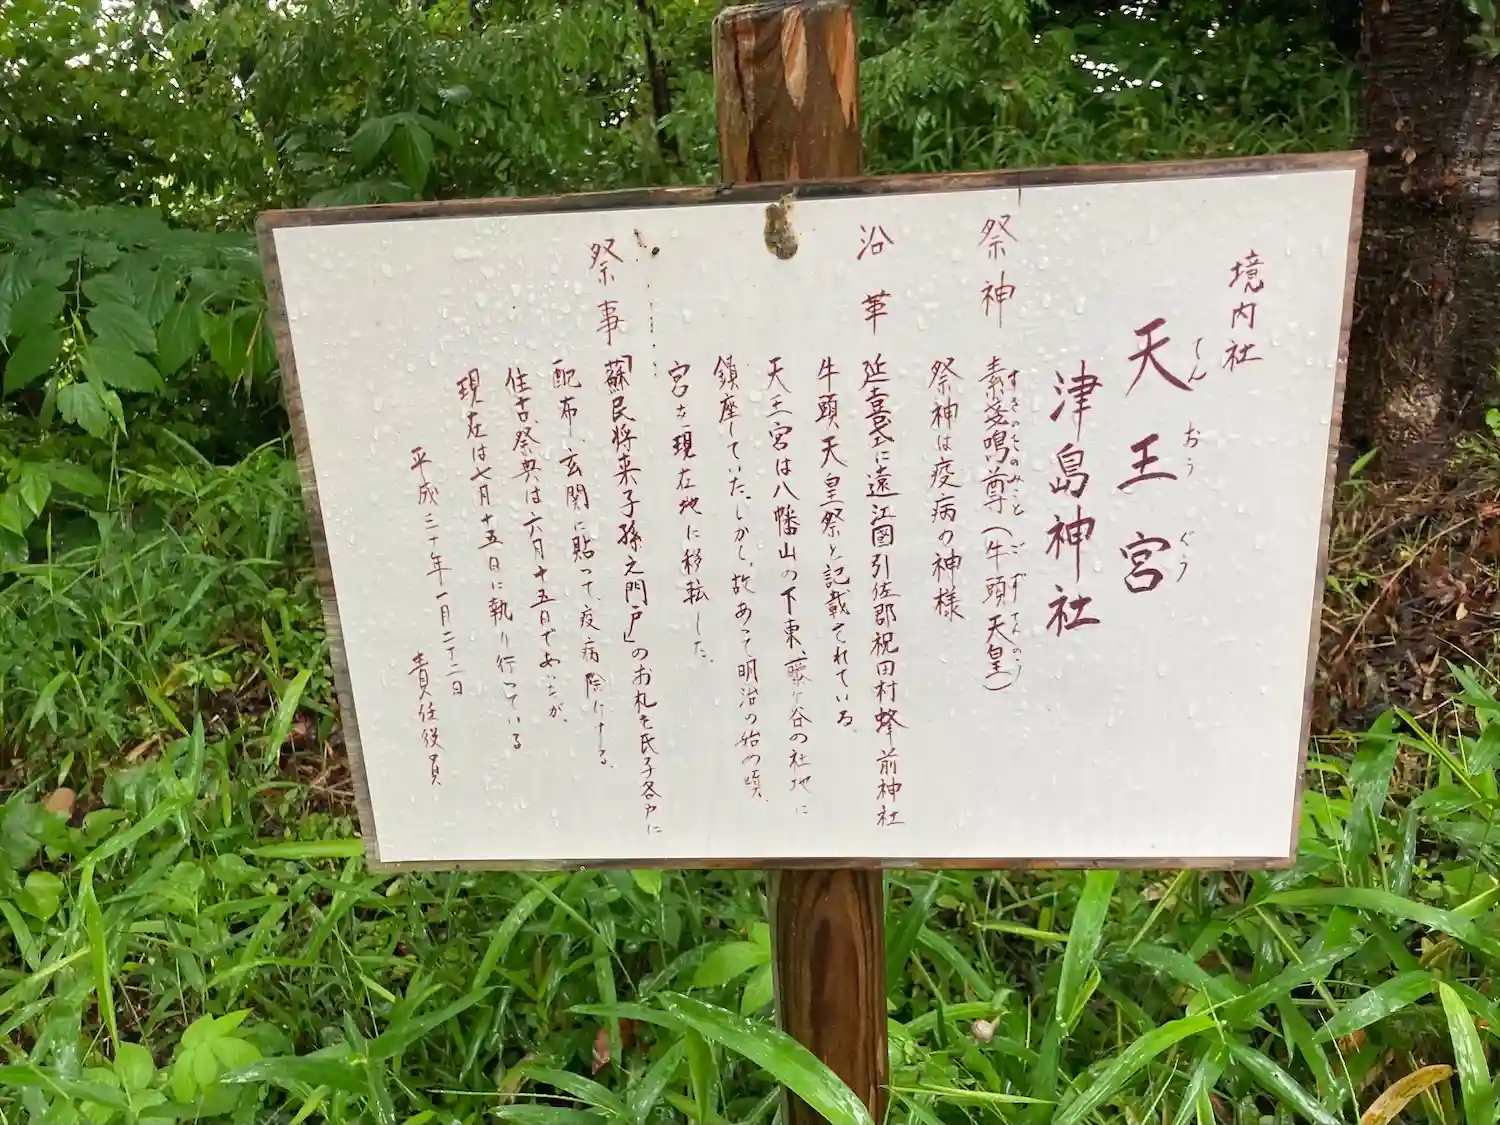 境内社
天王宮
てんおうぐう
津島神社
祭神 素戔嗚尊(牛頭天皇)
すさのおのみこと ごずてんのう
祭神は疫病の神様
沿革 延喜式に遠江國引佐郡祝田村蜂前神社
牛頭天皇祭と記載されている
天王宮は八幡山の下東、藤ヶ谷の社地に
鎮座していた。しかし、故あって明治の始の頃、
宮を現在地に移転した。
祭事 「蘇民将来子孫之門戸」のお札を氏子各戸に
配布、玄関に貼って疫病除けする。
住古、祭典は六月十五日であったが、
現在は七月十五日に執り行っている
平成三十年一月二十二日
責任役員